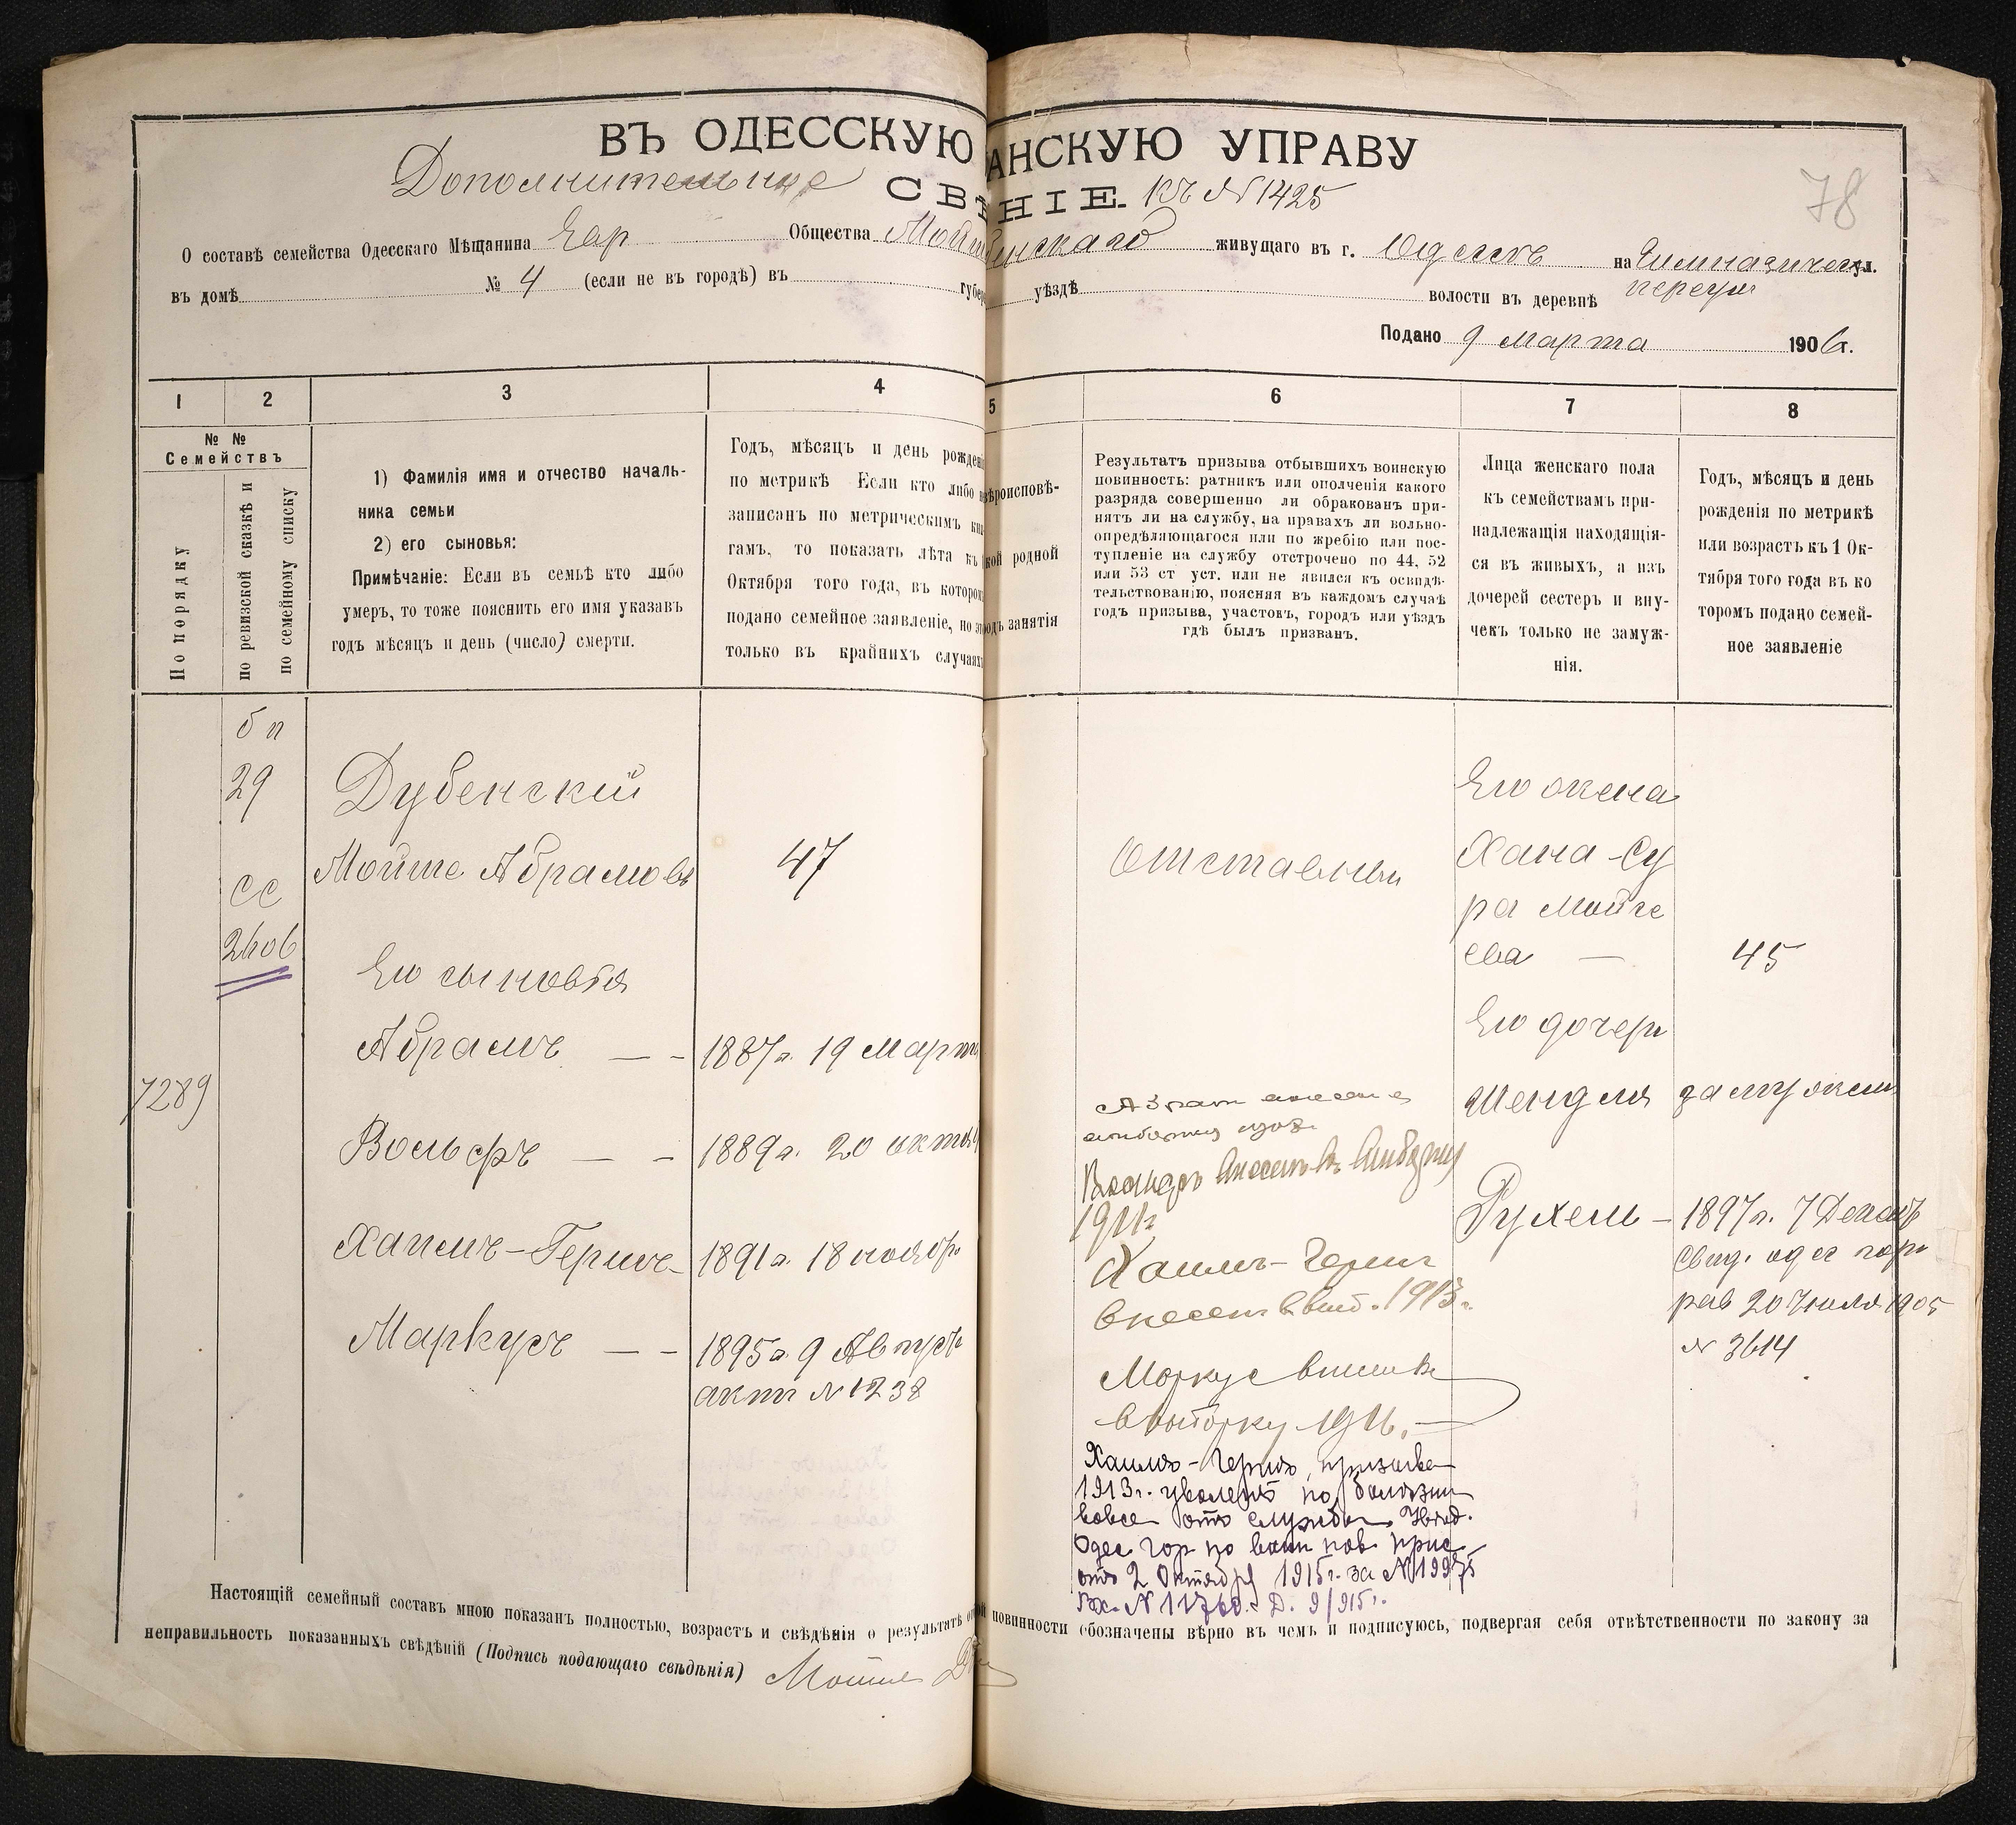 ВЪ ОДЕССКУЮ АНСКУЮ УПРАВУ
Дополнительное СВѢ НІЕ. къ № 1425
78
О составѣ семейства Одесскаго Мѣщанина Евр Общества Мойш бенскаго живущаго въ г. Одессѣ на Гимназическ ул.
въ домѣ № 4 (если не въ городѣ) въ губер уѣздѣ волости въ деревнѣ
Подано 9 марта 1906 г.
1 2 3 4 5 6 7 8
№ №
Семействъ
По порядку
по ревизской сказкѣ и
по семейному списку
1) Фамилія имя и отчество началь-
ника семьи
2) его сыновья:
Примѣчаніе: Если въ семьѣ кто либо
умеръ, то тоже пояснить его имя указавъ
годъ мѣсяцъ и день (число) смерти.
Годъ, мѣсяцъ и день рожденi
по метрикѣ Если кто либо н
записанъ по метрическимъ кни
гамъ, то показать лѣта къ 1
Октября того года, въ которо
подано семейное заявленіе, но э
только въ крайнихъ случаях
ѣроисповѣ-
кой родной
одъ занятія
Результатъ призыва отбывшихъ воинскую
повинность: ратникъ или ополченія какого
разряда совершенно ли обракованъ при-
нятъ ли на службу, на правахъ ли вольно-
опредѣляющагося или по жребію или пос-
тупленіе на службу отстрочено по 44, 52
или 53 ст уст. или не явился къ освидѣ-
тельствованію, поясняя въ каждомъ случаѣ
годъ призыва, участокъ, городъ или уѣздъ
гдѣ былъ призванъ.
Лица женскаго пола
къ семействамъ при-
надлежащія находящія-
ся въ живыхъ, а изъ
дочерей сестеръ и вну-
чекъ только не замуж-
нія.
Годъ, мѣсяцъ и день
рожденія по метрикѣ
или возрастъ къ 1 Ок-
тября того года въ ко
торомъ подано семей-
ное заявленіе
7289
бп
29
СС
2606
Дубенскій
Мойше Абрамовъ 47
Его сыновья
Абрамъ — — 1887 г. 19 Марта
Вольфъ — — 1889 г. 20 октяб
Хаимъ-Гершъ — 1891 г. 18 ноябр
Маркусъ — — 1895 г. 9 Август
актъ № 1238
Отставной
Хаимъ-Герш
внесенъ в выб. 1913 г.
Маркус внесенъ
в выборку 1916. —
Хаимъ-Гершъ, призыва
1913 г. уволенъ по болѣзни
вовсе отъ службы.
Одес гор по воин пов прис
отъ 2 Октября 1915 г. за № 19975
Вх. № 11760. Д. 9/915 г.
Его жена
Хана-Су
ра Мойсе
ева — 45
Его дочери
Шендля замужем
Рухель — 1897 г. 7 Декаб
Свид. одес гор
рав 20 Июля 1905
№ 3614
Настоящій семейный составъ мною показанъ полностью, возрастъ и свѣдѣнія о результатѣ от й повинности обозначены вѣрно въ чемъ и подписуюсь, подвергая себя отвѣтственности по закону за
неправильность показанныхъ свѣдѣній (Подпись подающаго свѣдѣнія) Мойше